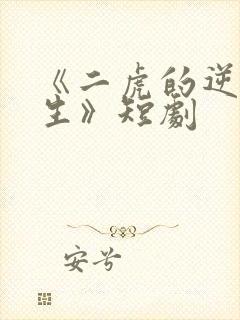 《二虎的逆
生》短劇
安兮